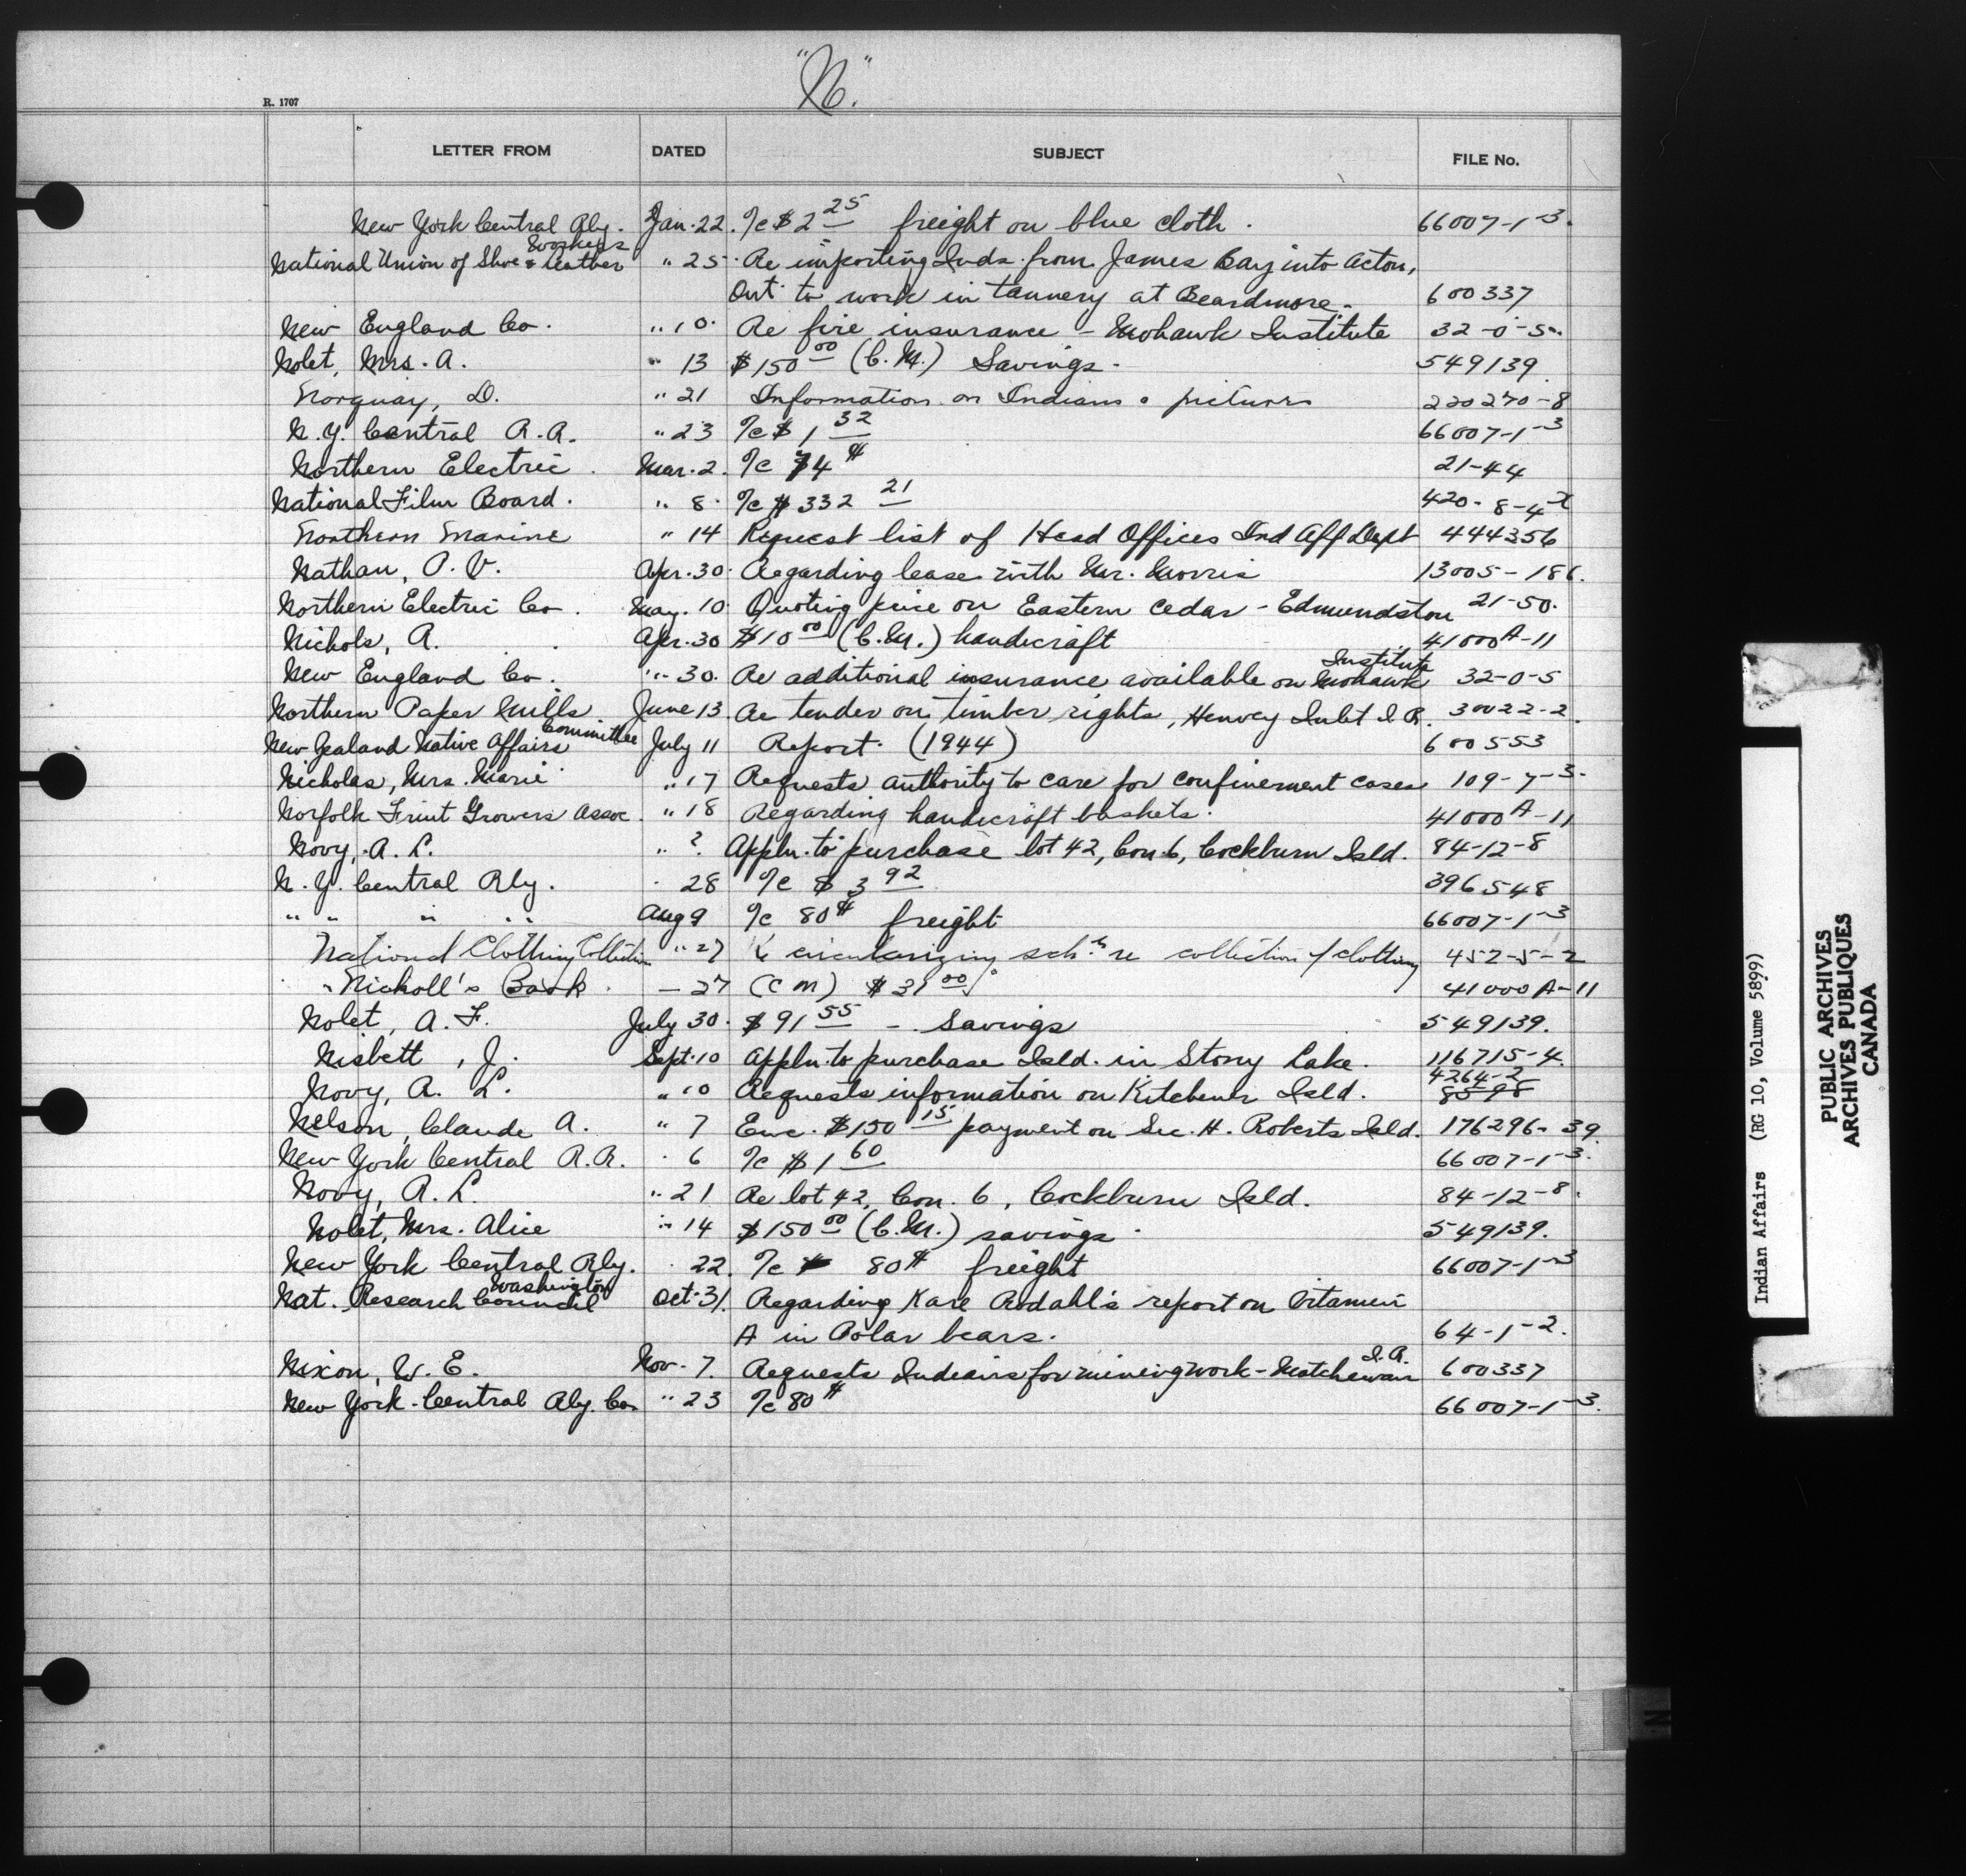 "N."
R. 1707
LETTER FROM DATED SUBJECT FILE No.
New York Central Rly. Jan. 22. a/c $2 25 freight on blue cloth. 66007-1-3.
National Union of Shoe & Leather Workers " 25. Re importing Inds. from James Bay into Acton,
Ont. to work in tannery at Beardmore. 600337
New England Co. " 10. Re fire insurance - Mohawk Institute 32-0-5.
Nolet, Mrs. A. " 13 $150 00 (C.M.) Savings. 549139
Norquay, D. " 21 Information on Indians & pictures 220270-8
N.Y. Central R.R. " 23 a/c $1 32 66007-1-3
Northern Electric. Mar. 2. a/c 74¢ 21-44
National Film Board. " 8. a/c $332 21 420-8-4
Northern Marine " 14 Request list of Head Offices Ind Aff Dept 444356
Nathan, P. V. Apr. 30. Regarding lease with Mr. Morris 13005-186.
Northern Electric Co. May. 10. Quoting price on Eastern Cedar - Edmundston 21-50.
Nichols, A. Apr. 30 $10 00 (C.M.) handicraft 41000A-11
New England Co. " 30. Re additional insurance available on Mohawk Institute 32-0-5
Northern Paper Mills June 13 Re tender on timber rights, Henvey Inlet I.R. 30022-2.
New Zealand Native Affairs Committee July 11 Report. (1944) 600553
Nicholas, Mrs. Marie " 17 Requests authority to care for confinement cases 109-7-3.
Norfolk Fruit Growers Assoc. " 18 Regarding handicraft baskets. 41000A-11
Novy, A. L. " ? Appln. to purchase lot 42, Con. 6, Cockburn Isld. 84-12-8
N.Y. Central Rly. " 28 a/c $3 92 396548
" " " " Aug 9 a/c 80¢ freight 66007-1-3
National Clothing Collection " 27 circularizing schls re collection of clothing 452-5-2
Nicholl's Book. - 27 (CM) $31 00 41000A-11
Nolet, A. F. July 30. $91 55 - Savings 549139.
Nisbett, J. Sept. 10 Appln. to purchase Isld. in Stony Lake. 116715-4.
Novy, A. L. " 10 Requests information on Kitchener Isld. 4264-2
Nelson, Claude A. " 7 Enc. $150 15 payment on Sec. H. Roberts Isld. 176296-39.
New York Central R.R. " 6 a/c $1 60 66007-1-3.
Novy, A. L. " 21 Re lot 42, Con. 6, Cockburn Isld. 84-12-8.
Nolet, Mrs. Alice " 14 $150 00 (C.M.) savings. 549139.
New York Central Rly. " 22. a/c 80¢ freight 66007-1-3
Nat. Research Council Washington Oct. 31. Regarding Kare Rodahl's report on Vitamin
A in Polar bears. 64-1-2.
Nixon, W. E. Nov. 7. Requests Indians for mining work - Matchewan I.R. 600337
New York Central Rly. Co. " 23 a/c 80¢ 66007-1-3.
N
Indian Affairs (RG 10, Volume 5899)
PUBLIC ARCHIVES
ARCHIVES PUBLIQUES
CANADA